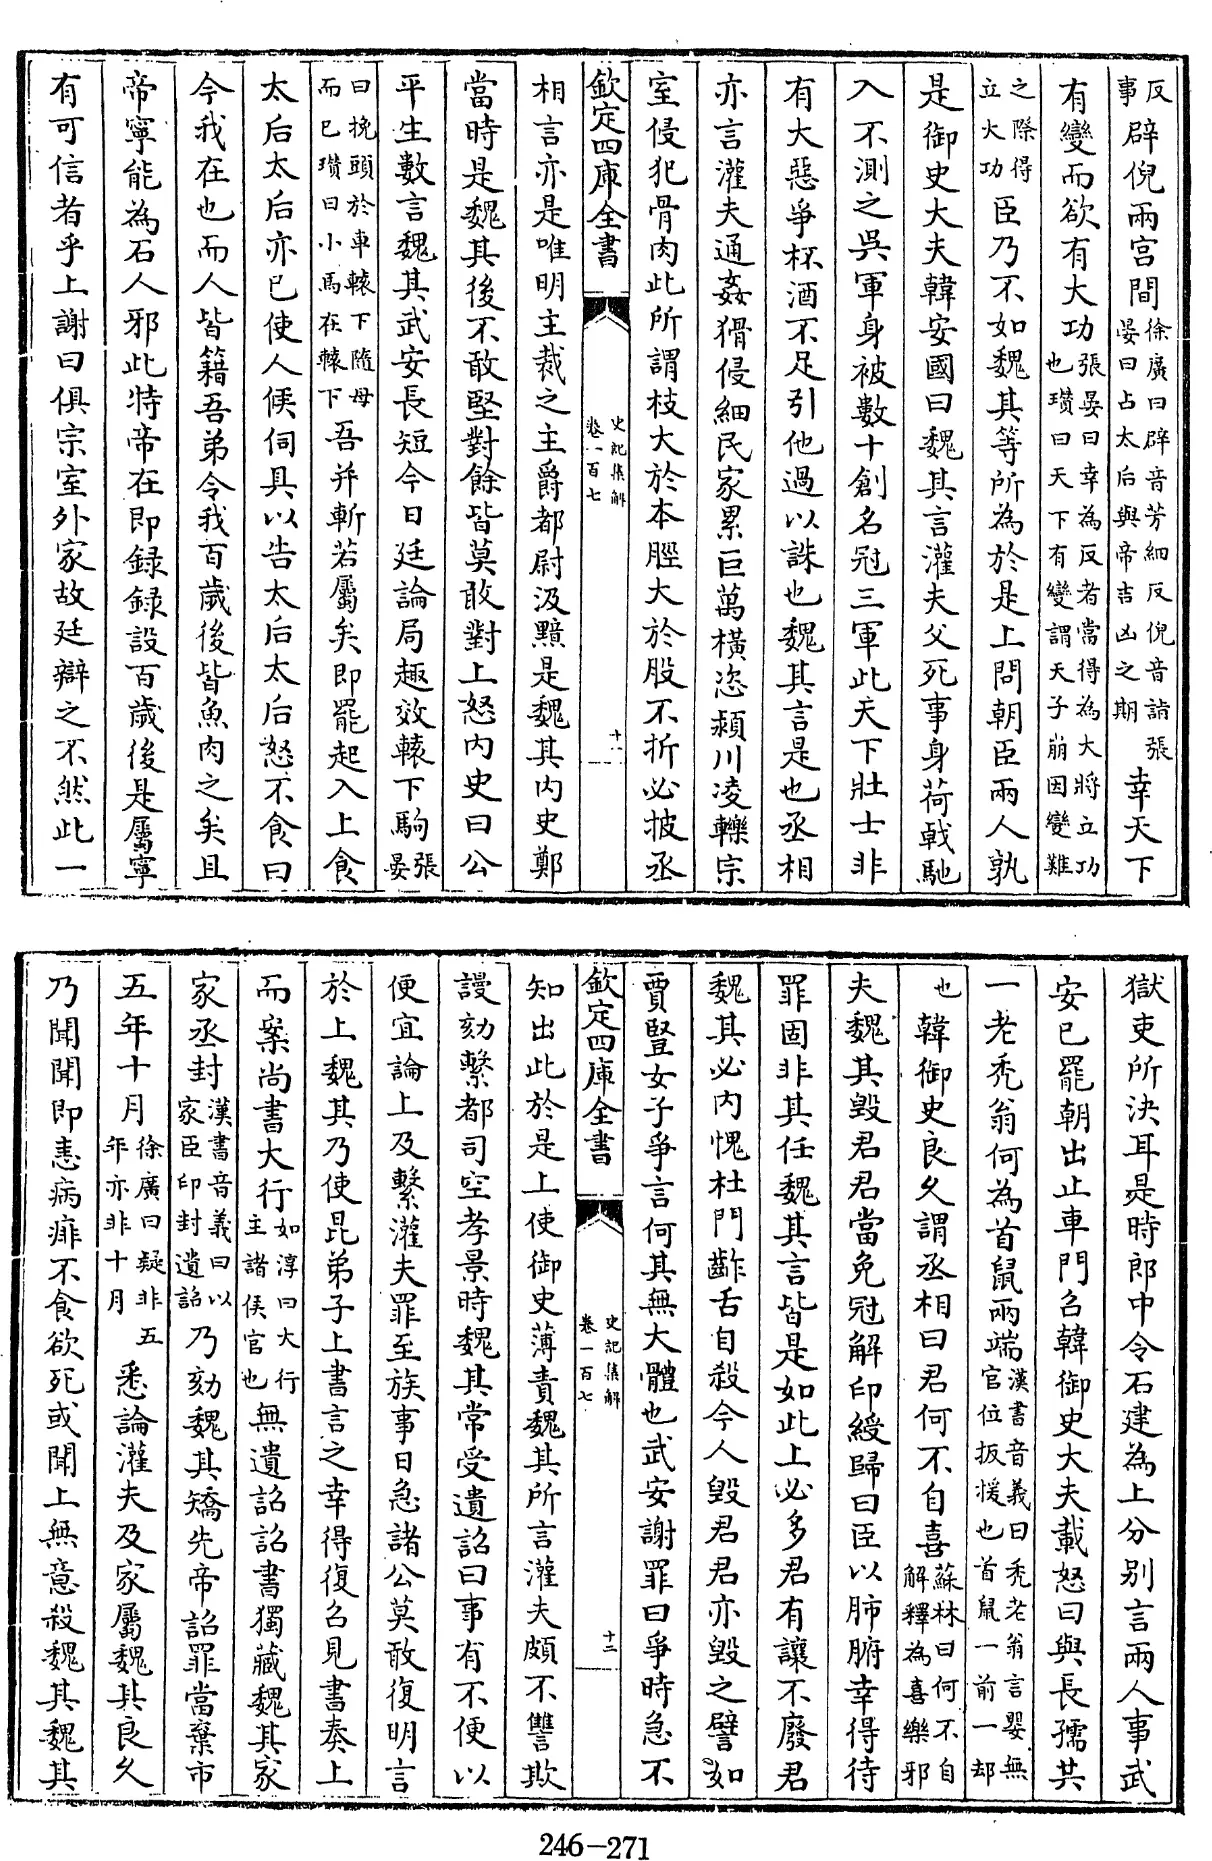 反事辟倪兩宮間徐廣曰辟音芳細反倪音詣張晏曰占太后與帝吉凶之期幸天下
有變而欲有大功張晏曰幸為反者當得為大將立功也瓚曰天下有變謂天子崩因變難
之際得立大功臣乃不如魏其等所為於是上問朝臣兩人孰
是御史大夫韓安國曰魏其言灌夫父死事身荷戟馳
入不測之吳軍身被數十創名冠三軍此天下壯士非
有大惡爭杯酒不足引他過以誅也魏其言是也丞相
亦言灌夫通姦猾侵細民家累巨萬橫恣潁川凌轢宗
室侵犯骨肉此所謂枝大於本脛大於股不折必披丞
欽定四庫全書
史記集解
卷一百七
十一
相言亦是唯明主裁之主爵都尉汲黯是魏其內史鄭
當時是魏其後不敢堅對餘皆莫敢對上怒內史曰公
平生數言魏其武安長短今日廷論局趣效轅下駒張晏
曰挽頭於車轅下隨母而已瓚曰小馬在轅下吾并斬若屬矣即罷起入上食
太后太后亦已使人候伺具以告太后太后怒不食曰
今我在也而人皆籍吾弟令我百歲後皆魚肉之矣且
帝寧能為石人邪此特帝在即錄錄設百歲後是屬寧
有可信者乎上謝曰俱宗室外家故廷辯之不然此一
獄吏所決耳是時郎中令石建為上分別言兩人事武
安已罷朝出止車門召韓御史大夫載怒曰與長孺共
一老禿翁何為首鼠兩端漢書音義曰禿老翁言嬰無官位扳援也首鼠一前一卻
也韓御史良久謂丞相曰君何不自喜蘇林曰何不自解釋為喜樂邪
夫魏其毀君君當免冠解印綬歸曰臣以肺腑幸得待
罪固非其任魏其言皆是如此上必多君有讓不廢君
魏其必內愧杜門齰舌自殺今人毀君君亦毀之譬如
賈豎女子爭言何其無大體也武安謝罪曰爭時急不
欽定四庫全書
史記集解
卷一百七
十二
知出此於是上使御史薄責魏其所言灌夫頗不讐欺
謾劾繫都司空孝景時魏其常受遺詔曰事有不便以
便宜論上及繫灌夫罪至族事日急諸公莫敢復明言
於上魏其乃使昆弟子上書言之幸得復召見書奏上
而案尚書大行如淳曰大行主諸侯官也無遺詔詔書獨藏魏其家
家丞封漢書音義曰以家臣印封遺詔乃劾魏其矯先帝詔罪當棄市
五年十月徐廣曰疑非五年亦非十月悉論灌夫及家屬魏其良久
乃聞聞即恚病痱不食欲死或聞上無意殺魏其魏其
246-271